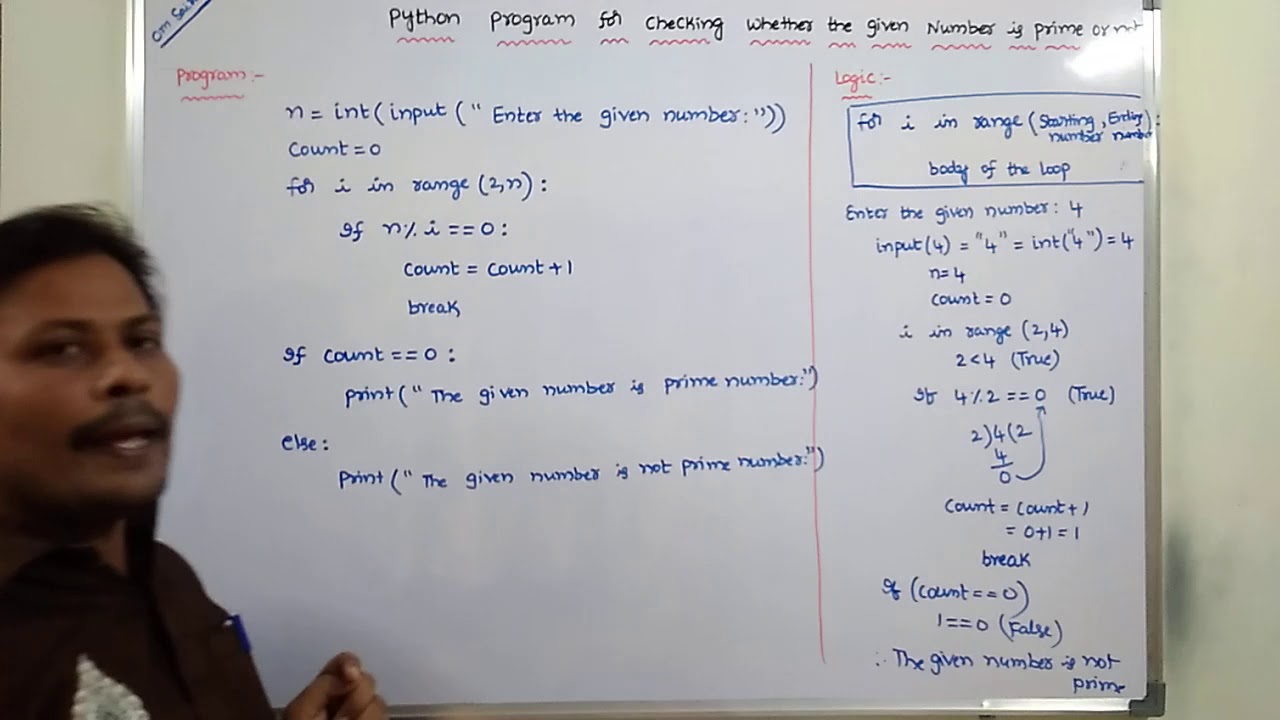 Om Sai
Python program for checking whether the given Number is prime or not
Program:-
n = int(input (" Enter the given number:"))
Count = 0
for i in range (2,n) :
If n % i == 0 :
Count = Count + 1
break
If Count == 0 :
print (" The given number is prime number:")
else :
print (" The given number is not prime number:")
Logic:-
for i in range (Starting number, Ending number) :
body of the loop
Enter the given number: 4
input(4) = "4" = int("4") = 4
n=4
Count = 0
i in range (2,4)
2 < 4 (True)
If 4 % 2 == 0 (True)
2)4(2
4
0
Count = Count + 1
= 0+1 = 1
break
If (Count == 0)
1 == 0 (False)
∴ The given number is not
prime